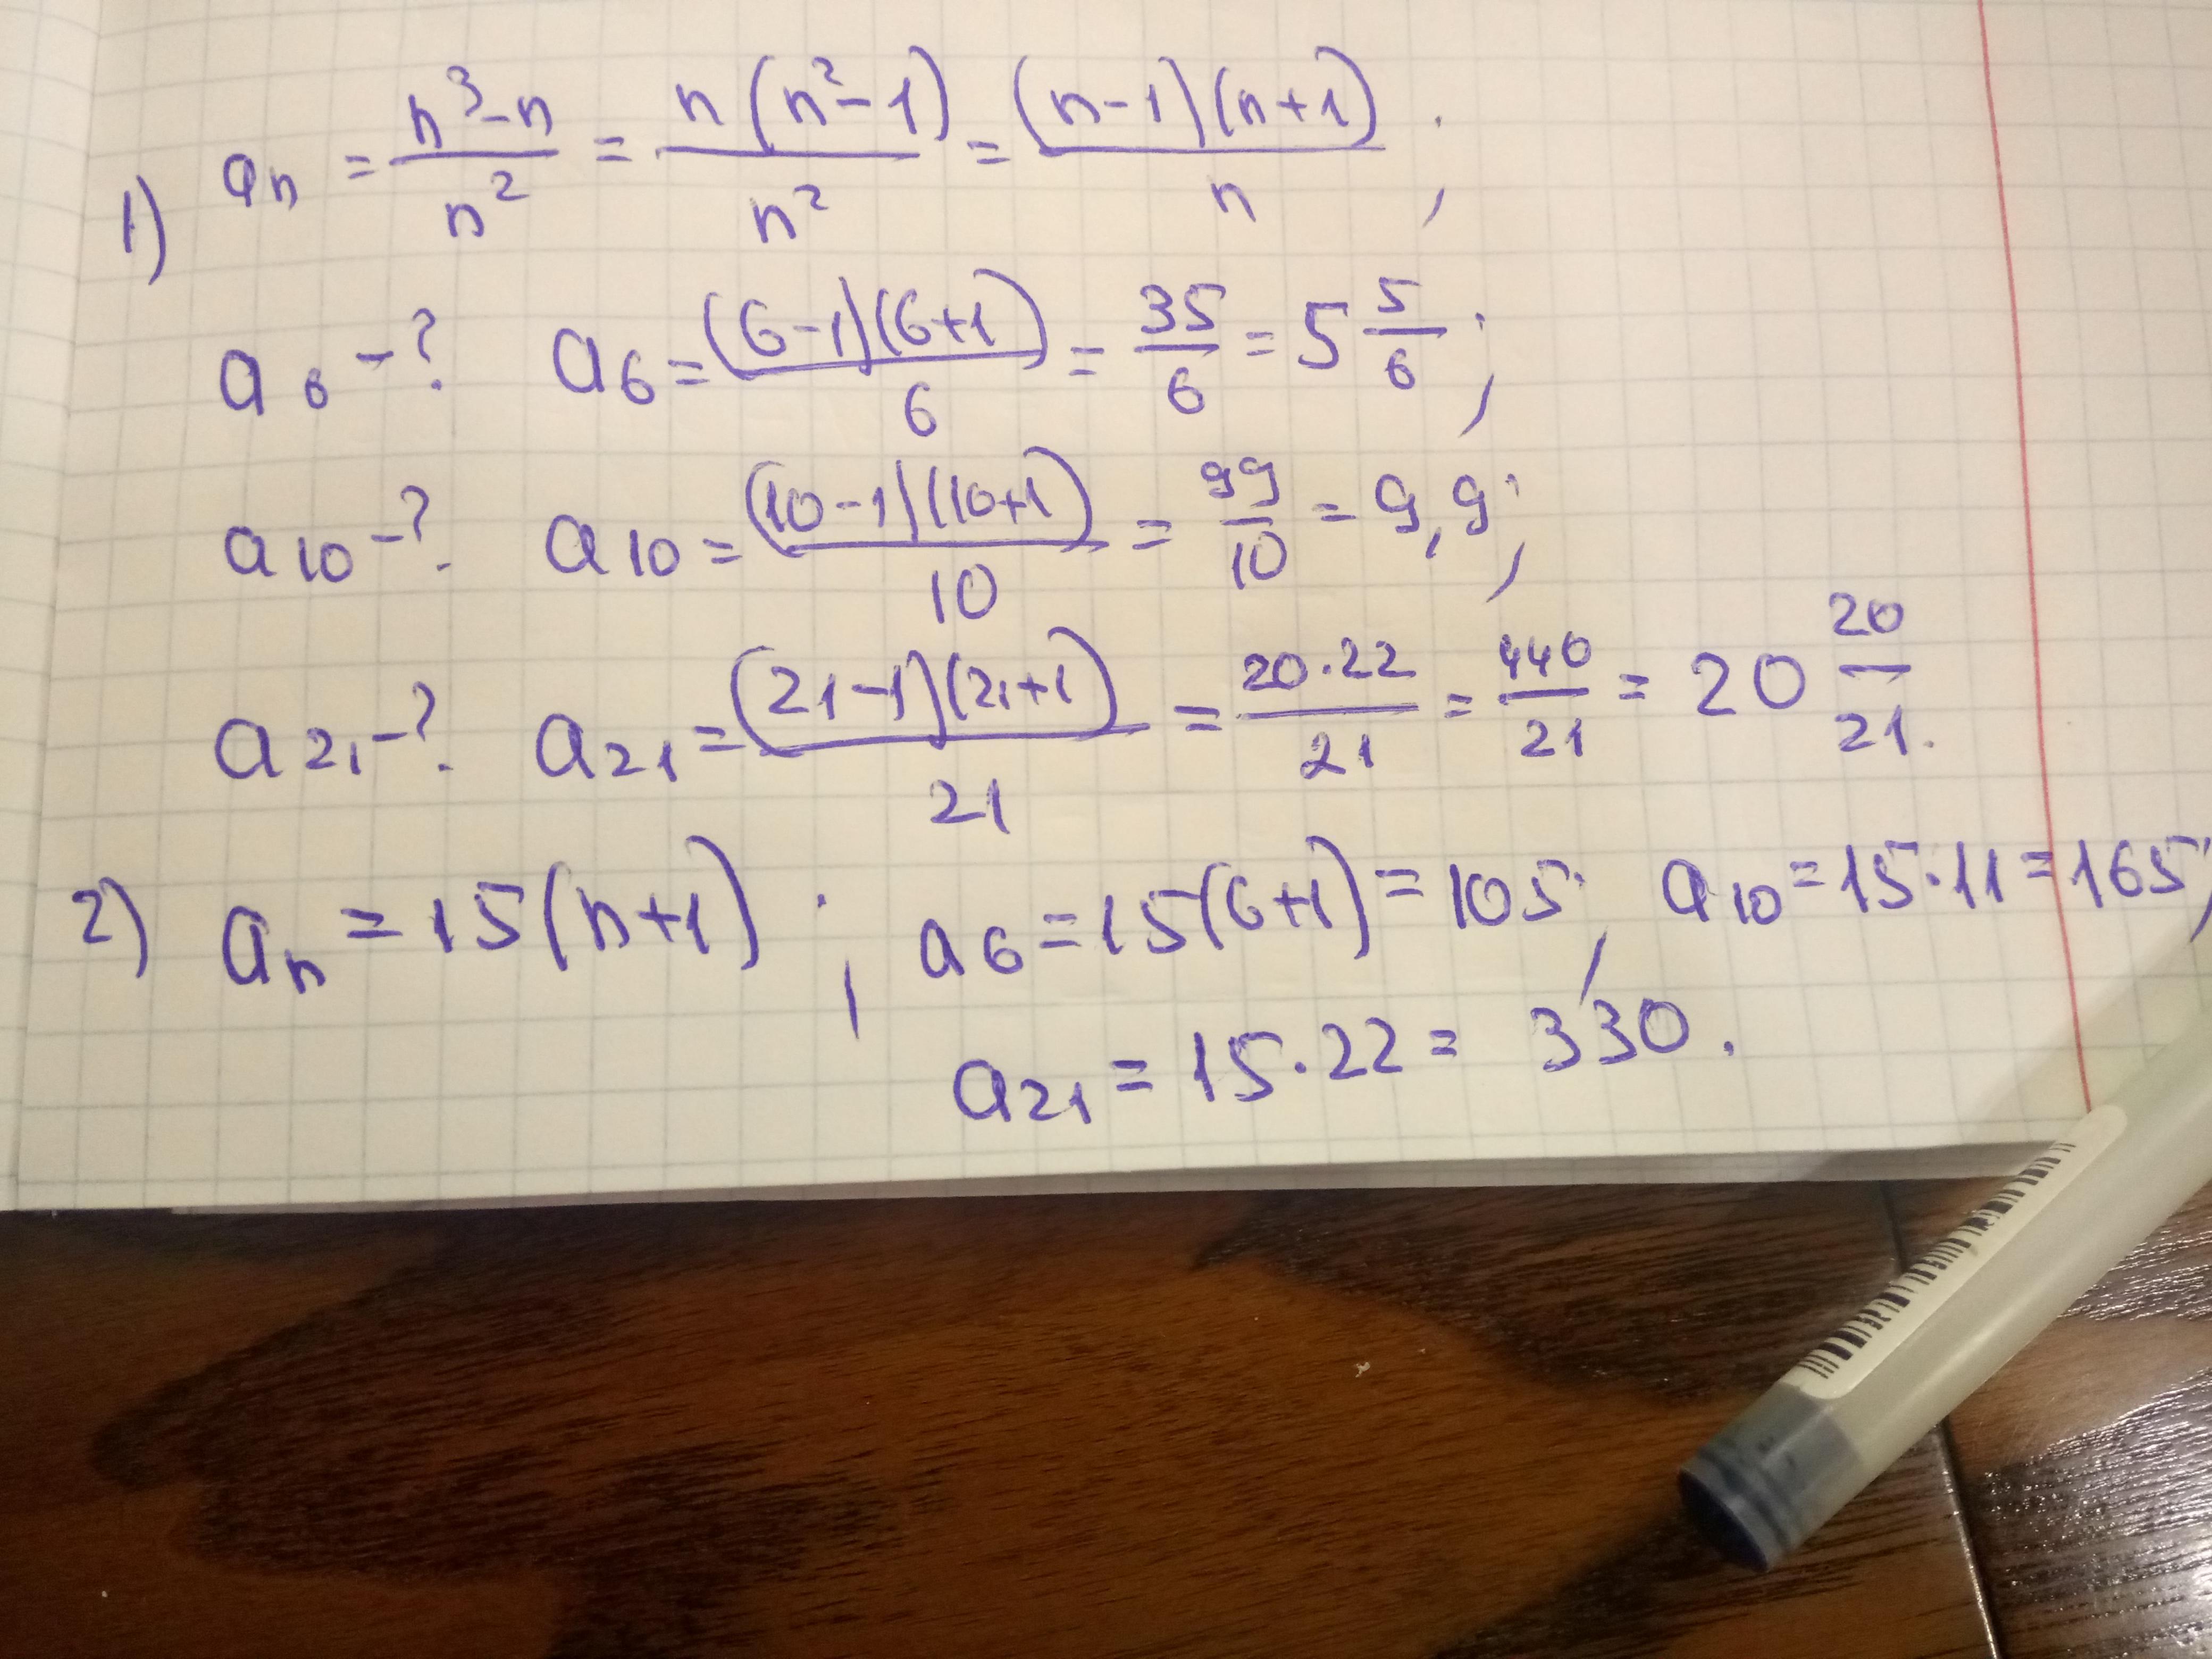 1) aₙ = (n³-n)/n² = n(n²-1)/n² = (n-1)(n+1)/n ;
a₆ -? a₆ = (6-1)(6+1)/6 = 35/6 = 5 5/6 ;
a₁₀ -? a₁₀ = (10-1)(10+1)/10 = 99/10 = 9,9 ;
a₂₁ -? a₂₁ = (21-1)(21+1)/21 = 20·22/21 = 440/21 = 20 20/21.
2) aₙ = 15(n+1) ; a₆ = 15(6+1) = 105 ; a₁₀ = 15·11 = 165 ;
a₂₁ = 15·22 = 330.